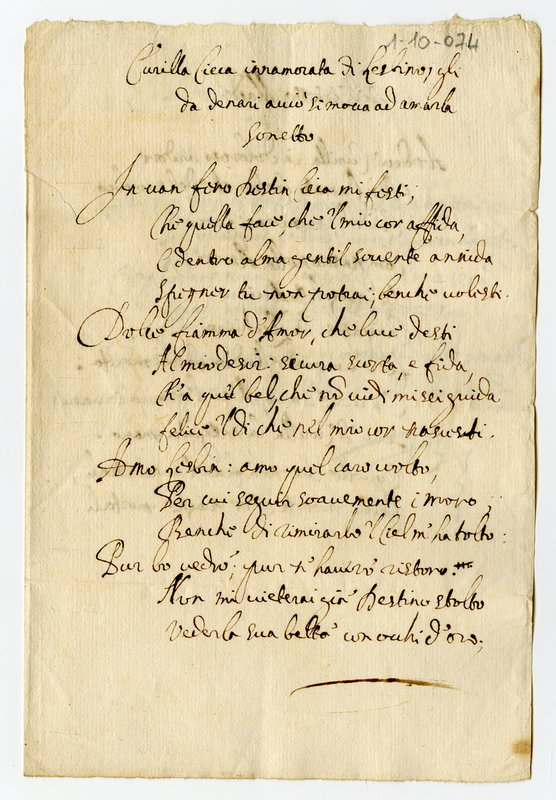 1-10-074
Curilla Cieca innamorata di Lesbino, gli
da denari acciò si mova ad amarla
Sonetto
In van fero Destin Cieca mi festi,
Che quella face, che 'l mio cor affida,
E dentro alma gentil sovente annida
Spegner tu non potrai, benche volesti.
Dolce fiamma d'Amor, che luce desti
Al mio desir: sicura scorta, e fida,
Ch'a quel bel, che nõ vidi mi sei guida
felice 'l dì che nel mio cor nascesti.
Amo Lesbin: amo quel caro volto,
Per cui seguir soavemente i moro;
Benche di rimirarlo 'l Ciel m'ha tolto:
Pur lo vedrò; pur n'havrò ristoro.
Non mi vieterai già Destino stolto
Veder la sua beltà con occhi d'oro;